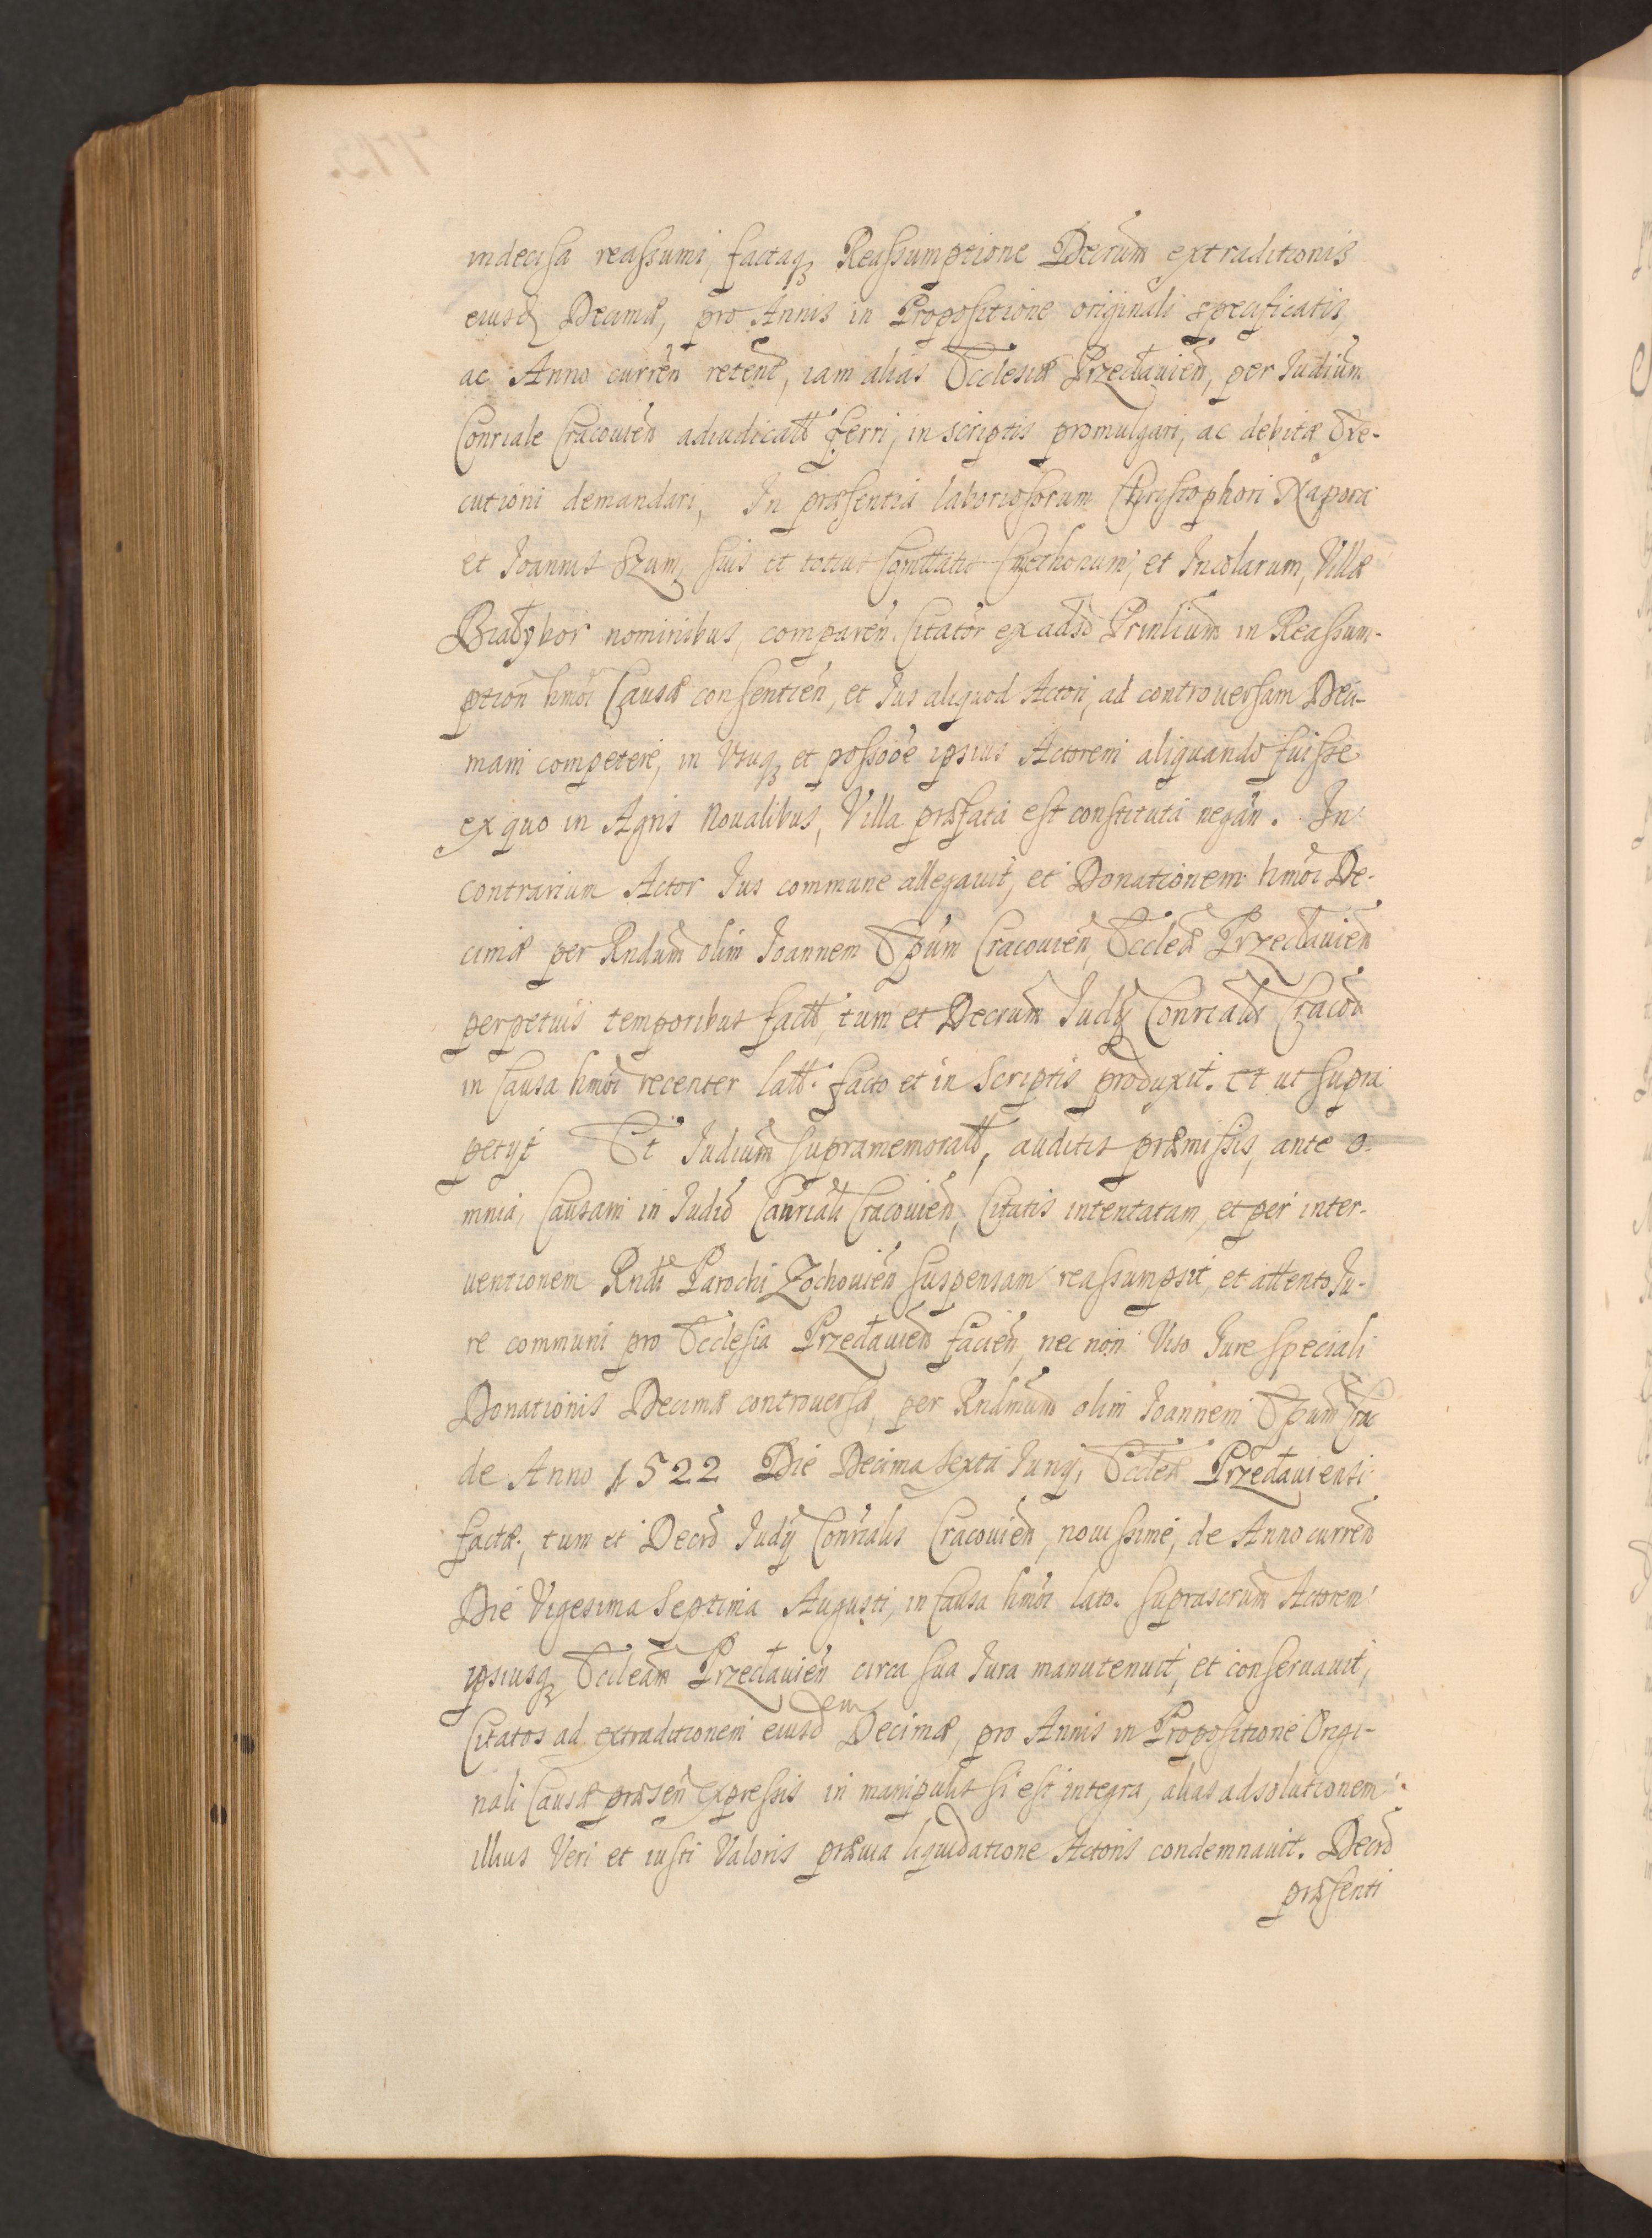 indecisa reassumi, factaq; Reassumptione Decrum extraditionis
eiusd Decimæ, pro Annis in Propositione originali specificatis,
ac Anno curren retent, iam alias Ecclesiæ Przecłauien, per Iudium
Conriale Cracouien adiudicatt ferri, in scriptis promulgari, ac debitæ Exe-
cutioni demandari, In præsentia laboriosorum Christophori Napora
et Ioannis Szum, suis et totius Comttatis Cmethonum, et Incolarum, Villæ
Białybor nominibus, comparen. Citator ex adso Prinlium in Reassum-
ption hmoi Causæ consentien, et Ius aliquod Actori, ad controuersam Deci-
mam competere, in Vsuq; et possooe ipsius Actorem aliquando fuisse
ex quo in Agris Noualibus, Villa præfata est constituta negan. In
contrarium Actor Ius commune allegauit, et Donationem hmoi De-
cimæ per Rndum olim Ioannem Epum Cracouien, Eccleæ Przecłauien
perpetuis temporibus fact, tum et Decrum Iudy Conrialis Cracou
in Causa hmoi recenter latt. facto et in scriptis produxit. et ut supra
petijt Et Iudium supramemoratt, auditis præmissis, ante o-
mnia, Causam in Iudio Conriali Cracouien, Citatis intentatam, et per inter-
uentionem Rndi Parochi Zochouien suspensam reassumpsit, et attento Iu-
re communi pro Ecclesia Przecłauien facien, nec non Viso Iure speciali
Donationis Decimæ controuersæ, per Rndmum olim Ioannem Epum Crac
de Anno 1522 Die Decima Sexta Iunij, Eccleæ Przecłauiensi
factæ, tum et Decro Iudy Conrialis Cracouien, nouissime, de Anno curren
Die Vigesima Septima Augusti, in Causa hmoi lato. suprascrum Actorem
ipsiusq; Eccleam Przecłauien circa sua Iura manutenuit, et conseruauit,
Citatos ad extraditionem eiusdem Decimæ, pro Annis in Propositione Origi-
nali Causæ præsen expressis in manipulis si est integra, alias ad solutionem
illius Veri et iusti Valoris præuia liquidatione Actoris condemnauit. Decro
præsenti